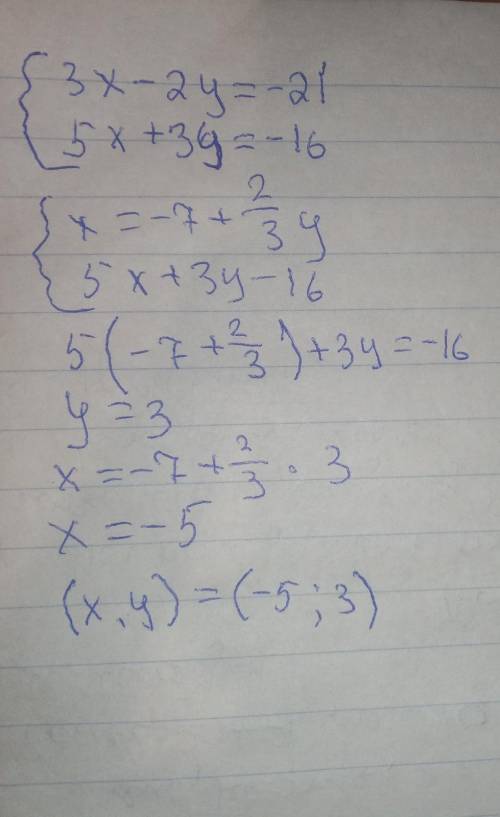 3x-2y=-21
5x+3y=-16
x=-7+2/3y
5x+3y-16
5(-7+2/3)+3y=-16
y=3
x=-7+2/3·3
x=-5
(x,y)=(-5;3)